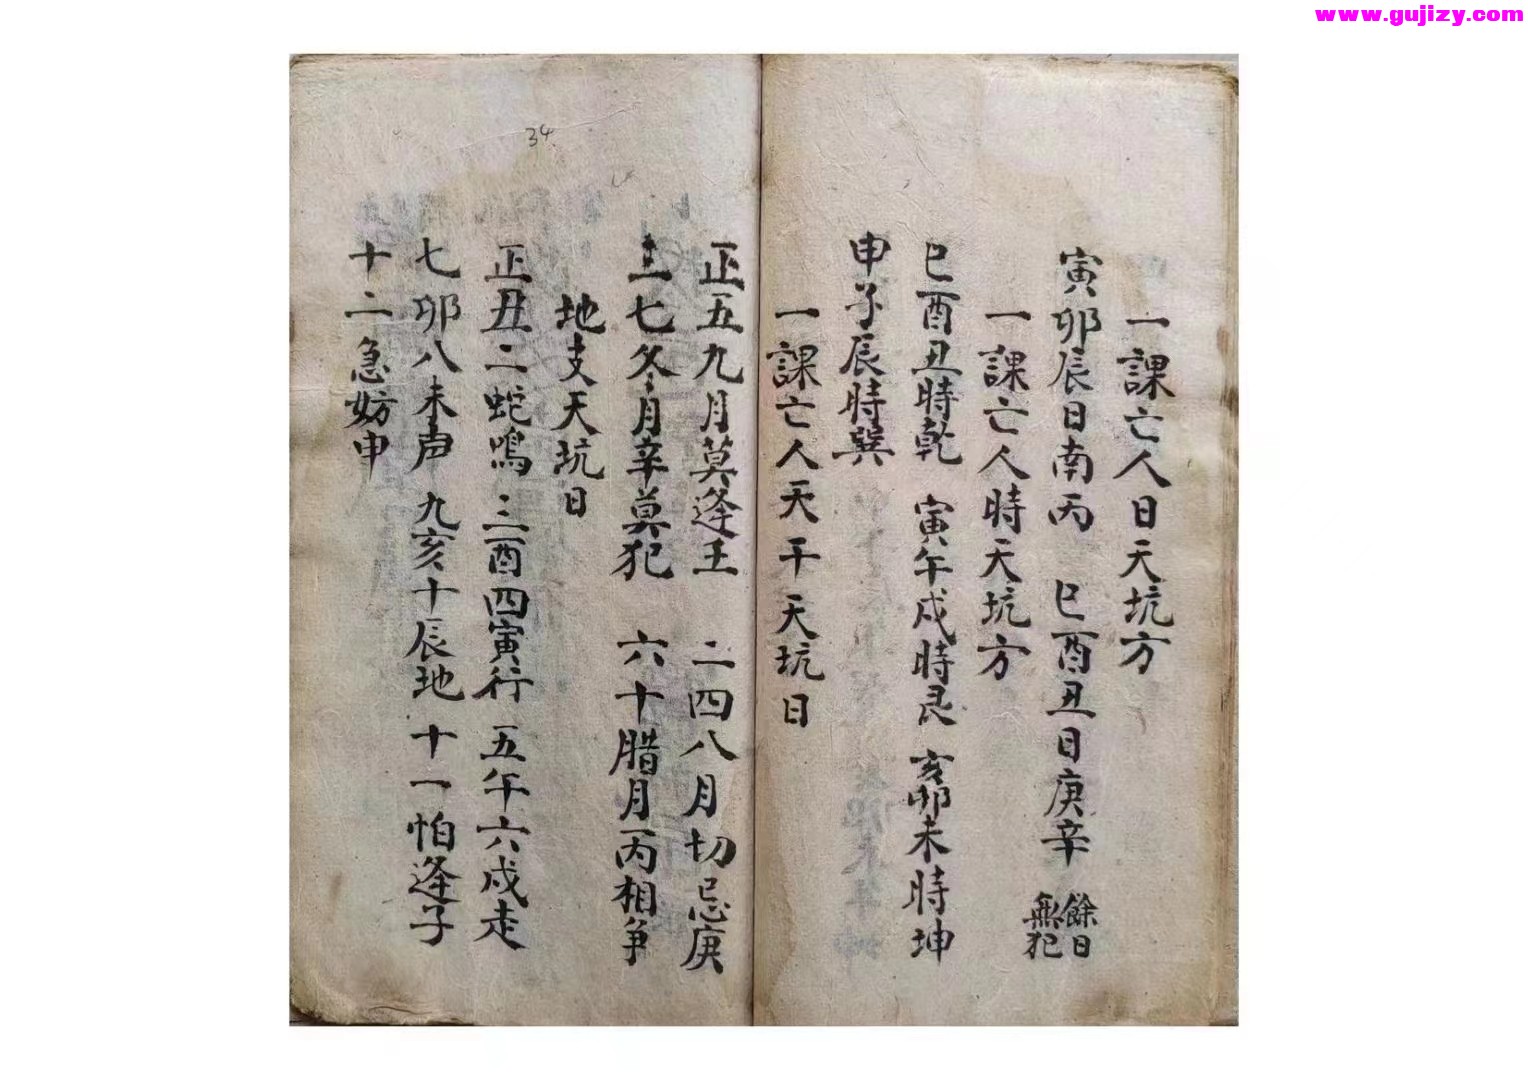 www.gujizy.com
一課亡人日天坑方
寅卯辰日南丙 巳酉丑日庚辛 餘日無犯
一課亡人時天坑方
巳酉丑時乾 寅午戌時艮 亥卯未時坤
申子辰時巽
一課亡人天干天坑日
34
正五九月莫逢壬 二四八月切忌庚
七冬月辛莫犯 六十腊月丙相爭
地支天坑日
正丑二蛇鳴 三酉四寅行 五午六戌走
七卯八未声 九亥十辰地 十一怕逢子
十二急妨申